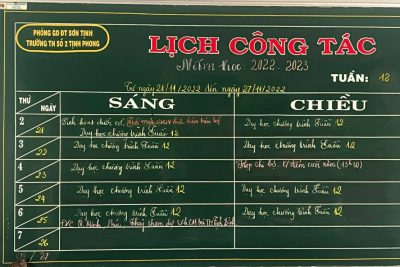 PHÒNG GD ĐT SƠN TỊNH
TRƯỜNG TH SỐ 2 TỊNH PHONG
LỊCH CÔNG TÁC
Năm học: 2022 - 2023
TUẦN: 12
Từ ngày 21/11/2022 đến ngày 27/11/2022
THỨ NGÀY SÁNG CHIỀU
2 21 Sinh hoạt dưới cờ,
Dạy học chương trình tuần 12 Dạy học chương trình tuần 12
3 22 Dạy học chương trình tuần 12 Dạy học chương trình tuần 12
4 23 Dạy học chương trình tuần 12 Họp chi bộ. cuối năm (13h30)
5 24 Dạy học chương trình tuần 12 Dạy học chương trình tuần 12
6 25 Dạy học chương trình tuần 12 Dạy học chương trình tuần 12
7 26
CN 27